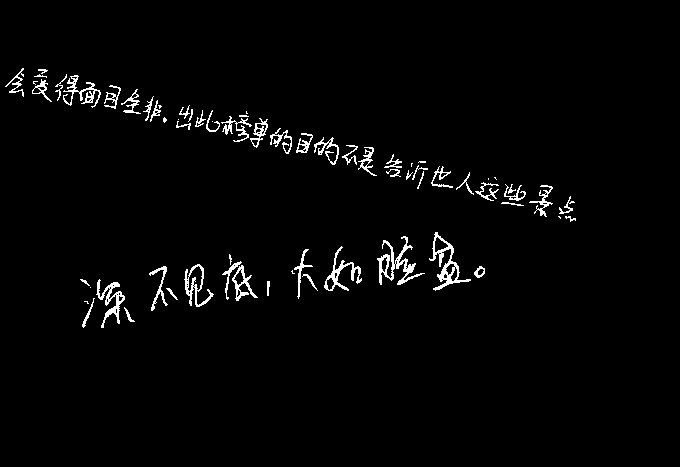 会变得面目全非。出此榜单的目的不是告诉世人这些景点
深不见底,大如脸盆。